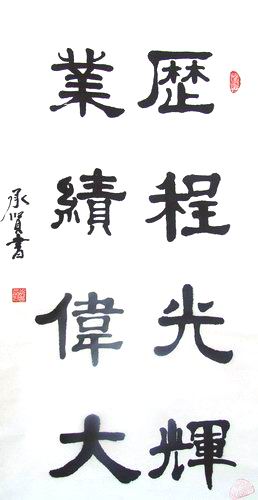 歷程光輝
業績偉大
承賢書